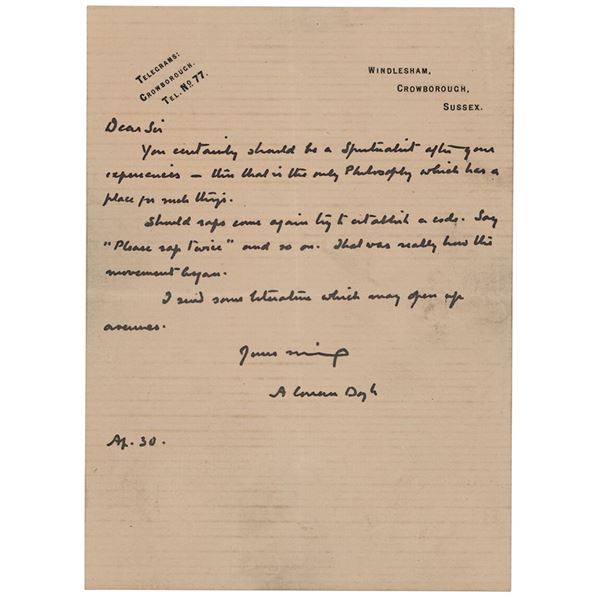 TELEGRAMS:
CROWBOROUGH.
TEL. No 77.
WINDLESHAM,
CROWBOROUGH,
SUSSEX.
Dear Sir
You certainly should be a Spiritualist after your
experiences – that is the only Philosophy which has a
place for such things.
Should raps come again try to establish a code. Say
"Please rap twice" and so on. That was really how the
movement began.
I send some literature which may open up
avenues.
Yours
A Conan Doyle
Ap. 30.